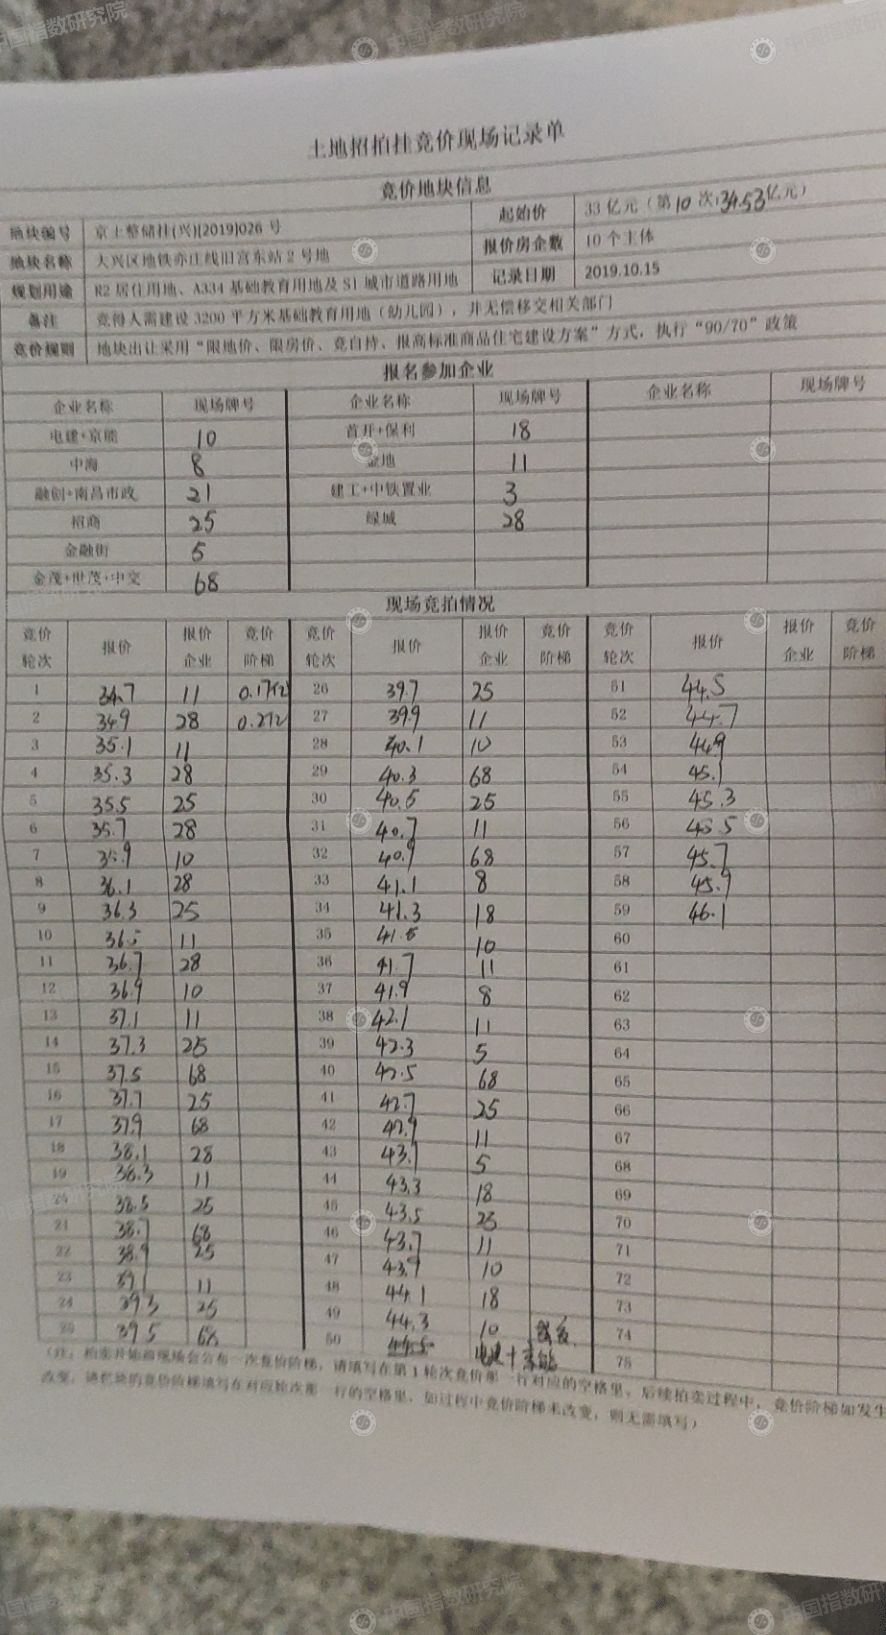 土地招拍挂竞价现场记录单
竞价地块信息
地块编号 京土整储挂(兴)[2019]026号 起始价 33亿元（第10次:34.53亿元）
地块名称 大兴区地铁亦庄线旧宫东站2号地 报价房企数 10个主体
规划用途 R2居住用地、A334基础教育用地及S1城市道路用地 记录日期 2019.10.15
备注 竞得人需建设3200平方米基础教育用地（幼儿园），并无偿移交相关部门
竞价规则 地块出让采用“限地价、限房价、竞自持、报高标准商品住宅建设方案”方式，执行“90/70”政策
报名参加企业
企业名称 现场牌号 企业名称 现场牌号 企业名称 现场牌号
电建+京能 10 首开+保利 18
中海 8 金地 11
融创+南昌市政 21 建工+中铁置业 3
招商 25 绿城 28
金融街 5
金茂+世茂+中交 68
现场竞拍情况
竞价轮次 报价 报价企业 竞价阶梯 竞价轮次 报价 报价企业 竞价阶梯 竞价轮次 报价 报价企业 竞价阶梯
1 34.7 11 0.17亿 26 39.7 25 51 44.5
2 34.9 28 0.2亿 27 39.9 11 52 44.7
3 35.1 11 28 40.1 10 53 44.9
4 35.3 28 29 40.3 68 54 45.1
5 35.5 25 30 40.5 25 55 45.3
6 35.7 28 31 40.7 11 56 45.5
7 35.9 10 32 40.9 68 57 45.7
8 36.1 28 33 41.1 8 58 45.9
9 36.3 25 34 41.3 18 59 46.1
10 36.5 11 35 41.5 10 60
11 36.7 28 36 41.7 11 61
12 36.9 10 37 41.9 8 62
13 37.1 11 38 42.1 11 63
14 37.3 25 39 42.3 5 64
15 37.5 68 40 42.5 68 65
16 37.7 25 41 42.7 25 66
17 37.9 68 42 42.9 11 67
18 38.1 28 43 43.1 5 68
19 38.3 11 44 43.3 18 69
20 38.5 25 45 43.5 25 70
21 38.7 68 46 43.7 11 71
22 38.9 25 47 43.9 10 72
23 39.1 11 48 44.1 18 73
24 39.3 25 49 44.3 10 74
25 39.5 68 50 电建+京能 75
（注：拍卖开始前现场会公布一次竞价阶梯，请填写在第1轮次竞价那一行对应的空格里，后续拍卖过程中，竞价阶梯如发生
改变，请把新的竞价阶梯填写在对应轮次那一行的空格里，如过程中竞价阶梯未改变，则无需填写）
中国指数研究院